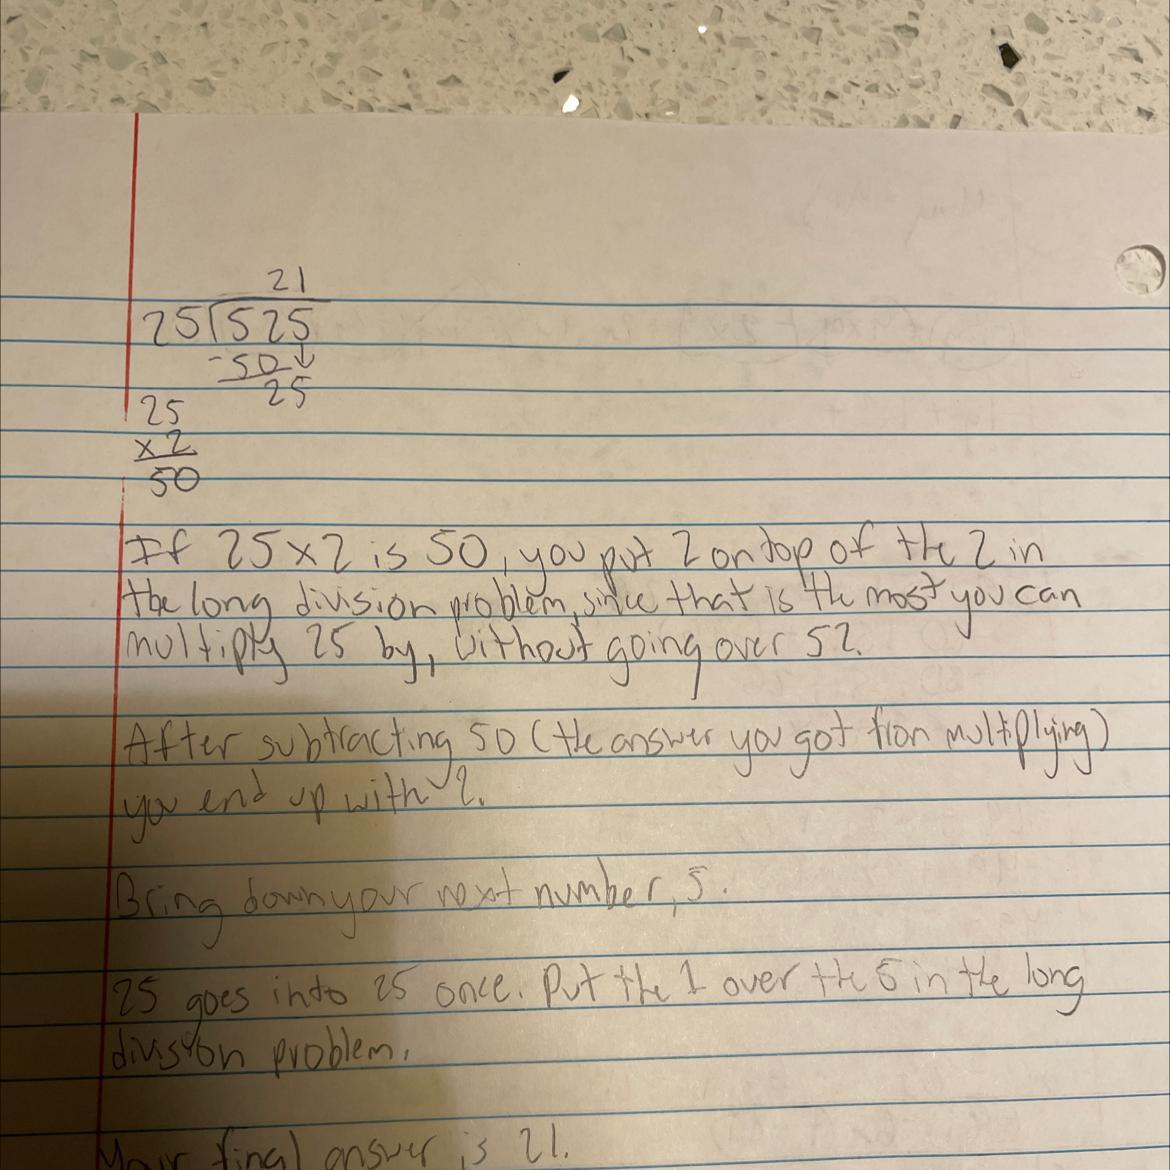 21
25)525
-50↓
25
25
x2
50
If 25x2 is 50, you put 2 on top of the 2 in
the long division problem, since that is the most you can
multiply 25 by, without going over 52.
After subtracting 50 (the answer you got from multiplying)
you end up with 2.
Bring down your next number, 5.
25 goes into 25 once. Put the 1 over the 5 in the long
division problem.
Your final answer is 21.